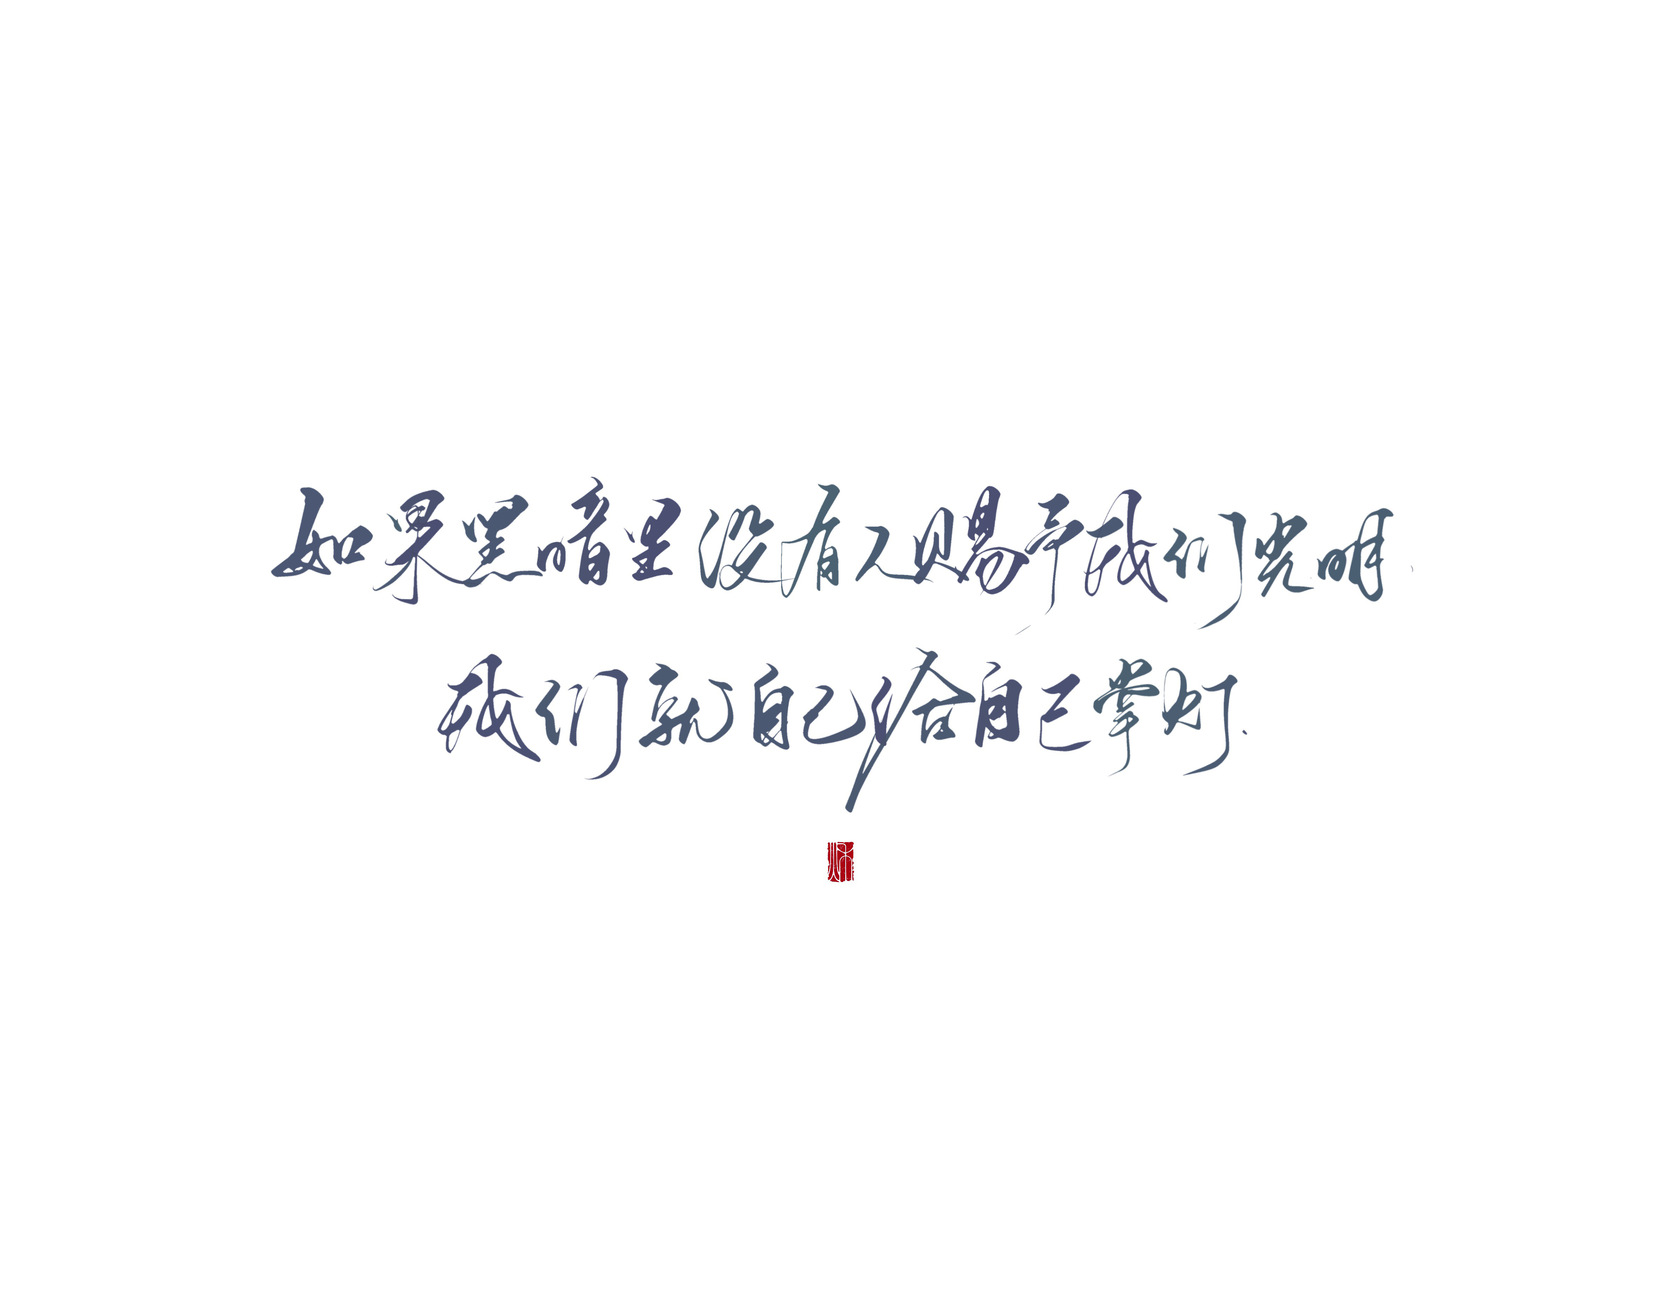 如果黑暗里没有人赐予我们光明
我们就自己给自己掌灯.